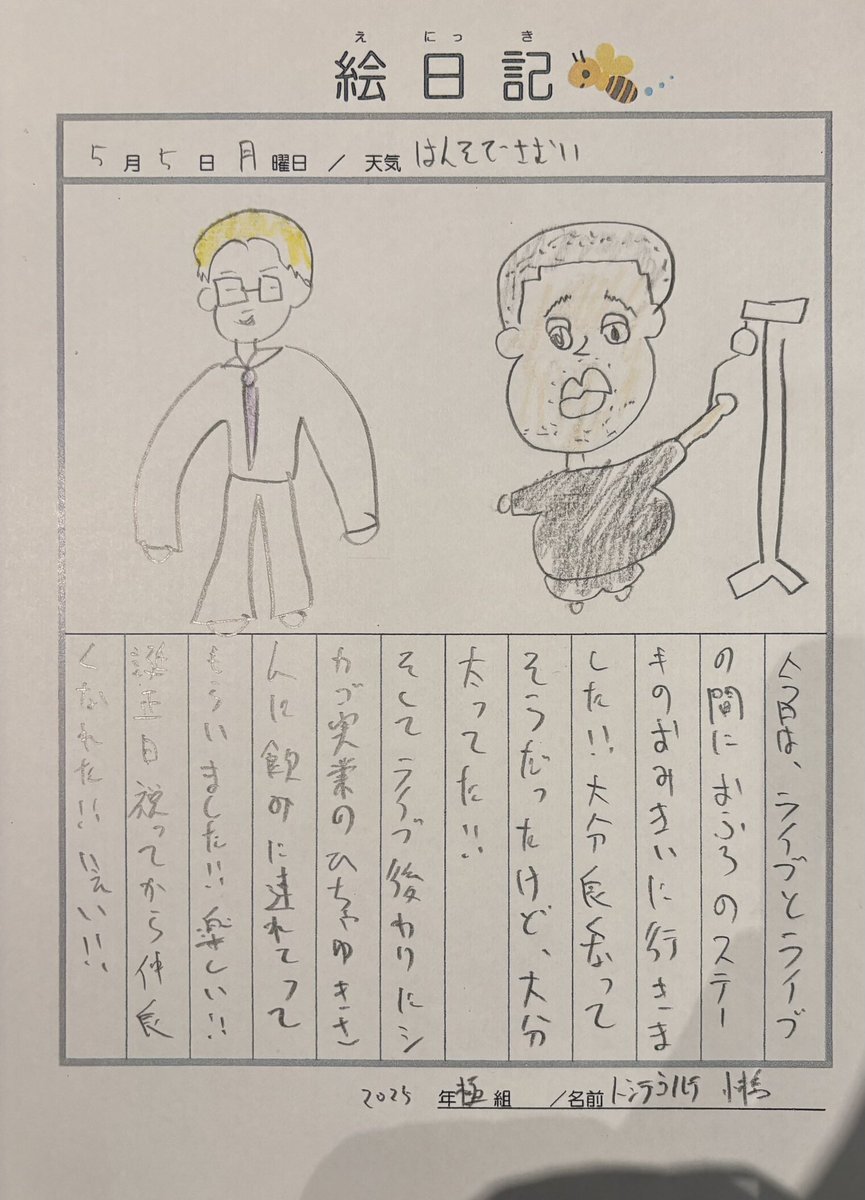 え にっ き
絵日記
5月5日月曜日/天気 はんそでさむい
今日は、ライブとライブ
の間におふろのステー
キのおみまいに行きま
した!!大分良くなって
そうだったけど、大分
太ってた!!
そしてライブ後わりにシ
カゴ実業のひちゃゆきさ
んに飲みに連れてって
もらいました!!楽しい!!
誕生日祝ってから仲良
くなれた!!いぇい!!
2025 年極組 /名前